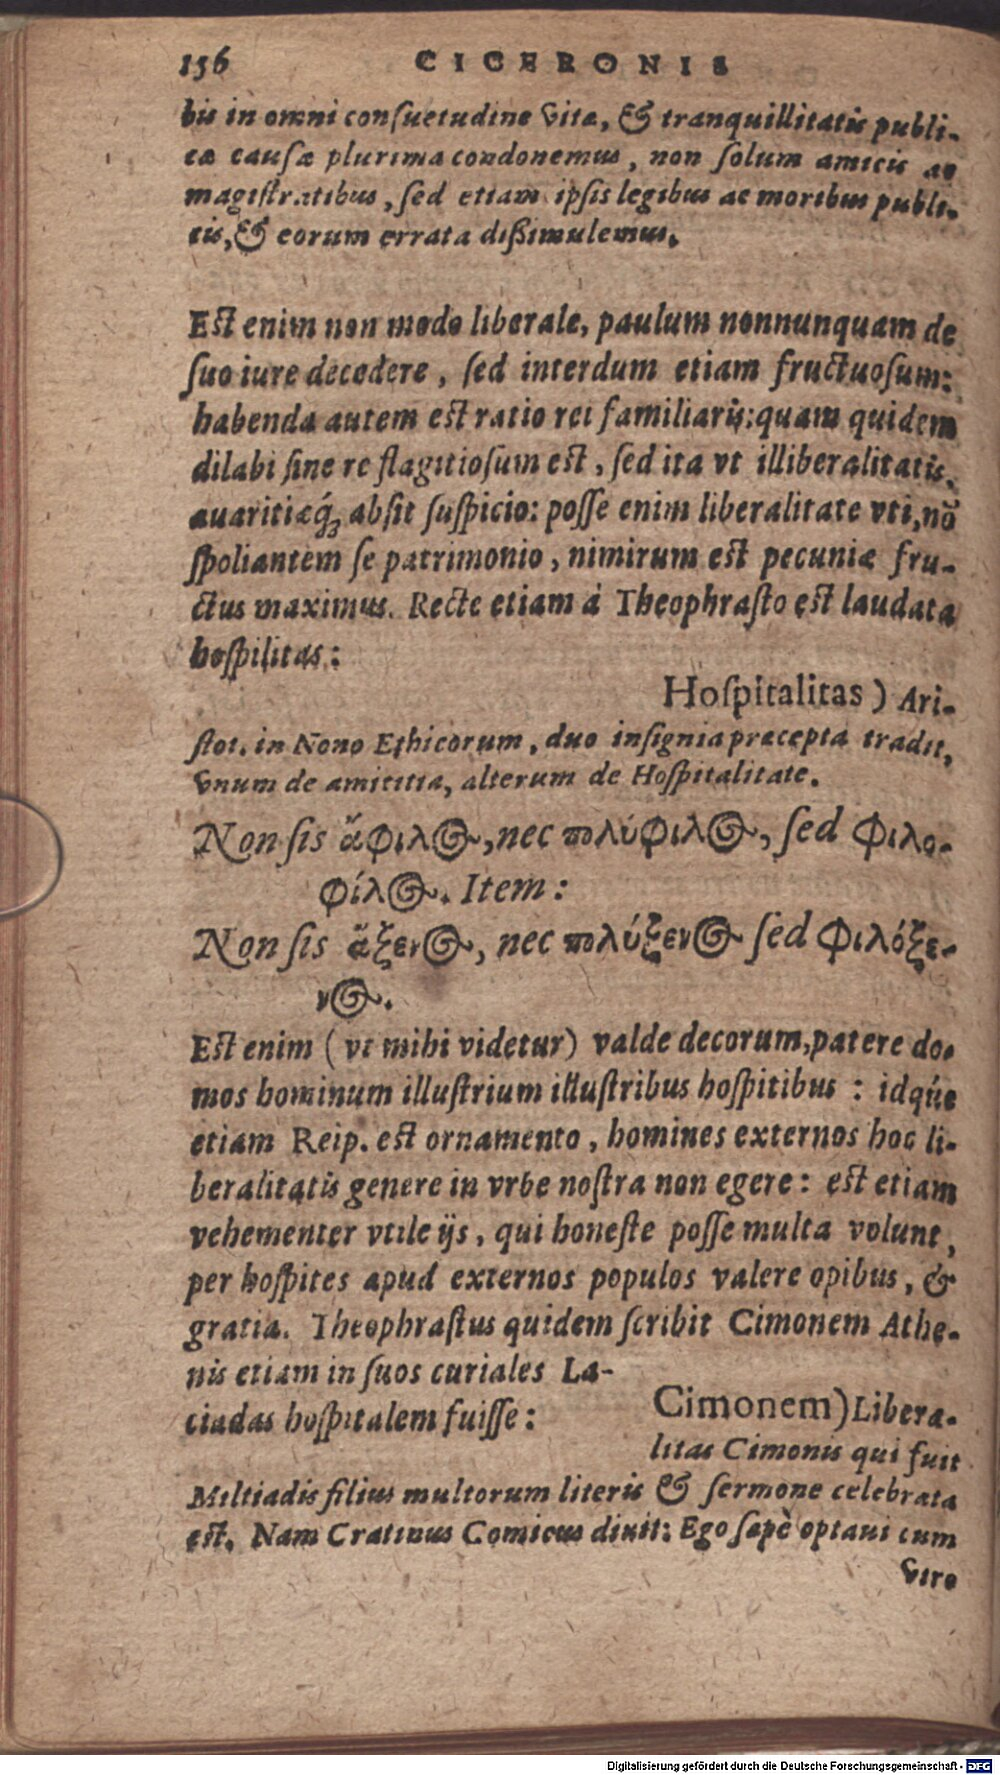 156 CICERONIS
bis in omni conſuetudine vitæ, & tranquillitatis publi-
cæ cauſæ plurima condonemus, non ſolum amicis ac
magiſtratibus, ſed etiam ipſis legibus ac moribus publi-
cis, & eorum errata dißimulemus.
Est enim non modo liberale, paulum nonnunquam de
ſuo iure decedere, ſed interdum etiam fructuoſum:
habenda autem est ratio rei familiaris: quam quidem
dilabi ſine re flagitioſum est, ſed ita vt illiberalitatis,
auaritiæq́; abſit ſuſpicio: poſſe enim liberalitate vti, nō
ſpoliantem ſe patrimonio, nimirum est pecuniæ fru-
ctus maximus. Recte etiam à Theophraſto est laudata
hoſpilitas:
Hoſpitalitas) Ari-
ſtot. in Nono Ethicorum, duo inſignia præcepta tradit,
vnum de amicitia, alterum de Hoſpitalitate.
Non ſis ἄφιλος, nec πολύφιλος, ſed φιλο-
φίλος. Item:
Non ſis ἄξενος, nec πολύξενος ſed φιλόξε-
νος.
Est enim (vt mihi videtur) valde decorum, patere do-
mos hominum illuſtrium illuſtribus hoſpitibus: idq́ue
etiam Reip. est ornamento, homines externos hoc li-
beralitatis genere in vrbe noſtra non egere: est etiam
vehementer vtile ijs, qui honeſte poſſe multa volunt,
per hoſpites apud externos populos valere opibus, &
gratia. Theophraſtus quidem ſcribit Cimonem Athe-
nis etiam in ſuos curiales La-
ciadas hoſpitalem fuiſſe:
Cimonem) Libera-
litas Cimonis qui fuit
Miltiadis filius multorum literis & ſermone celebrata
est. Nam Cratinus Comicus dixit: Ego ſæpè optaui cum
viro
Digitalisierung gefördert durch die Deutsche Forschungsgemeinschaft - DFG